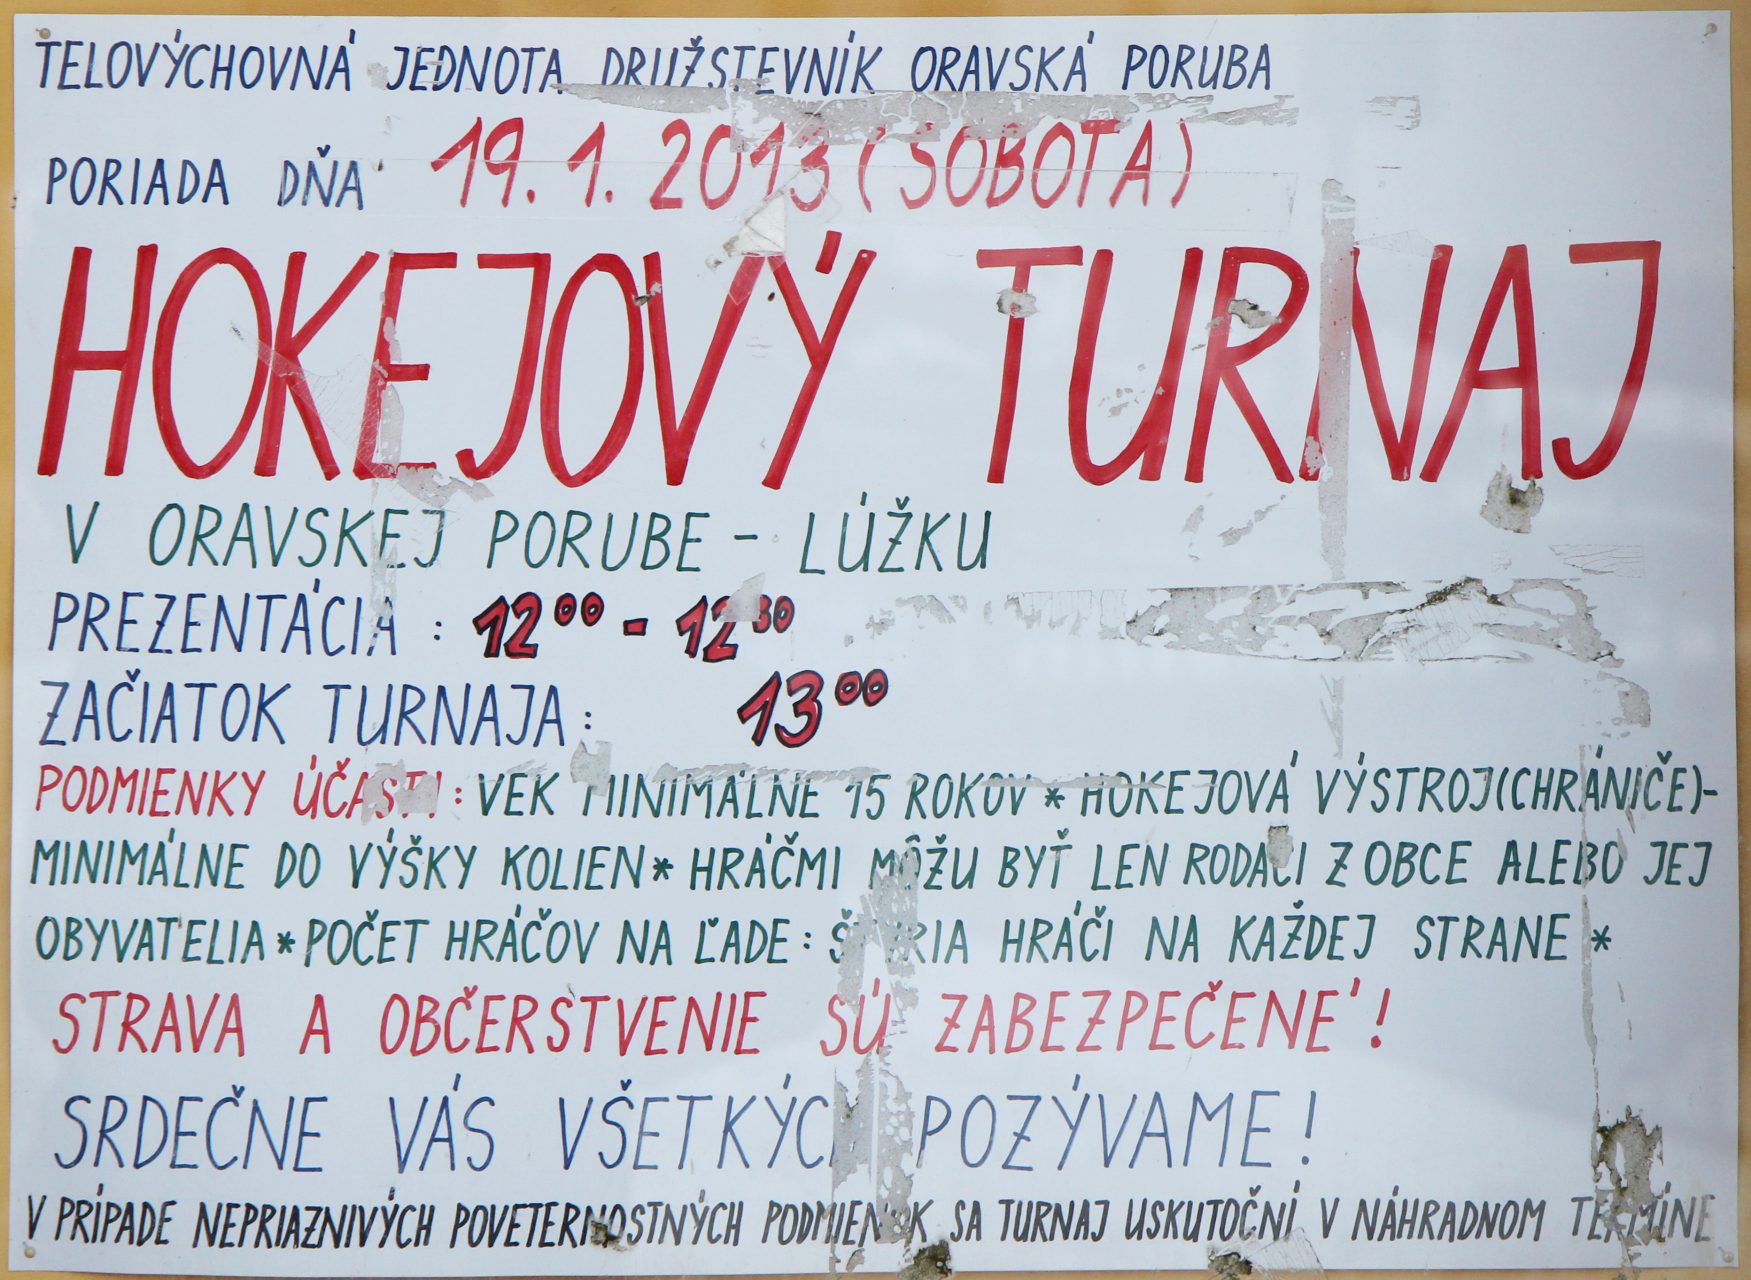 TELOVÝCHOVNÁ JEDNOTA DRUŽSTEVNÍK ORAVSKÁ PORUBA
PORIADA DŇA 19. 1. 2013 (SOBOTA)
HOKEJOVÝ TURNAJ
V ORAVSKEJ PORUBE - LÚŽKU
PREZENTÁCIA : 12⁰⁰ - 12³⁰
ZAČIATOK TURNAJA: 13⁰⁰
PODMIENKY ÚČASTI: VEK MINIMÁLNE 15 ROKOV * HOKEJOVÁ VÝSTROJ(CHRÁNIČE)-
MINIMÁLNE DO VÝŠKY KOLIEN * HRÁČMI MÔŽU BYŤ LEN RODÁCI Z OBCE ALEBO JEJ
OBYVATELIA * POČET HRÁČOV NA ĽADE: ŠTYRIA HRÁČI NA KAŽDEJ STRANE *
STRAVA A OBČERSTVENIE SÚ ZABEZPEČENÉ!
SRDEČNE VÁS VŠETKÝCH POZÝVAME!
V PRÍPADE NEPRIAZNIVÝCH POVETERNOSTNÝCH PODMIENOK SA TURNAJ USKUTOČNÍ V NÁHRADNOM TERMÍNE